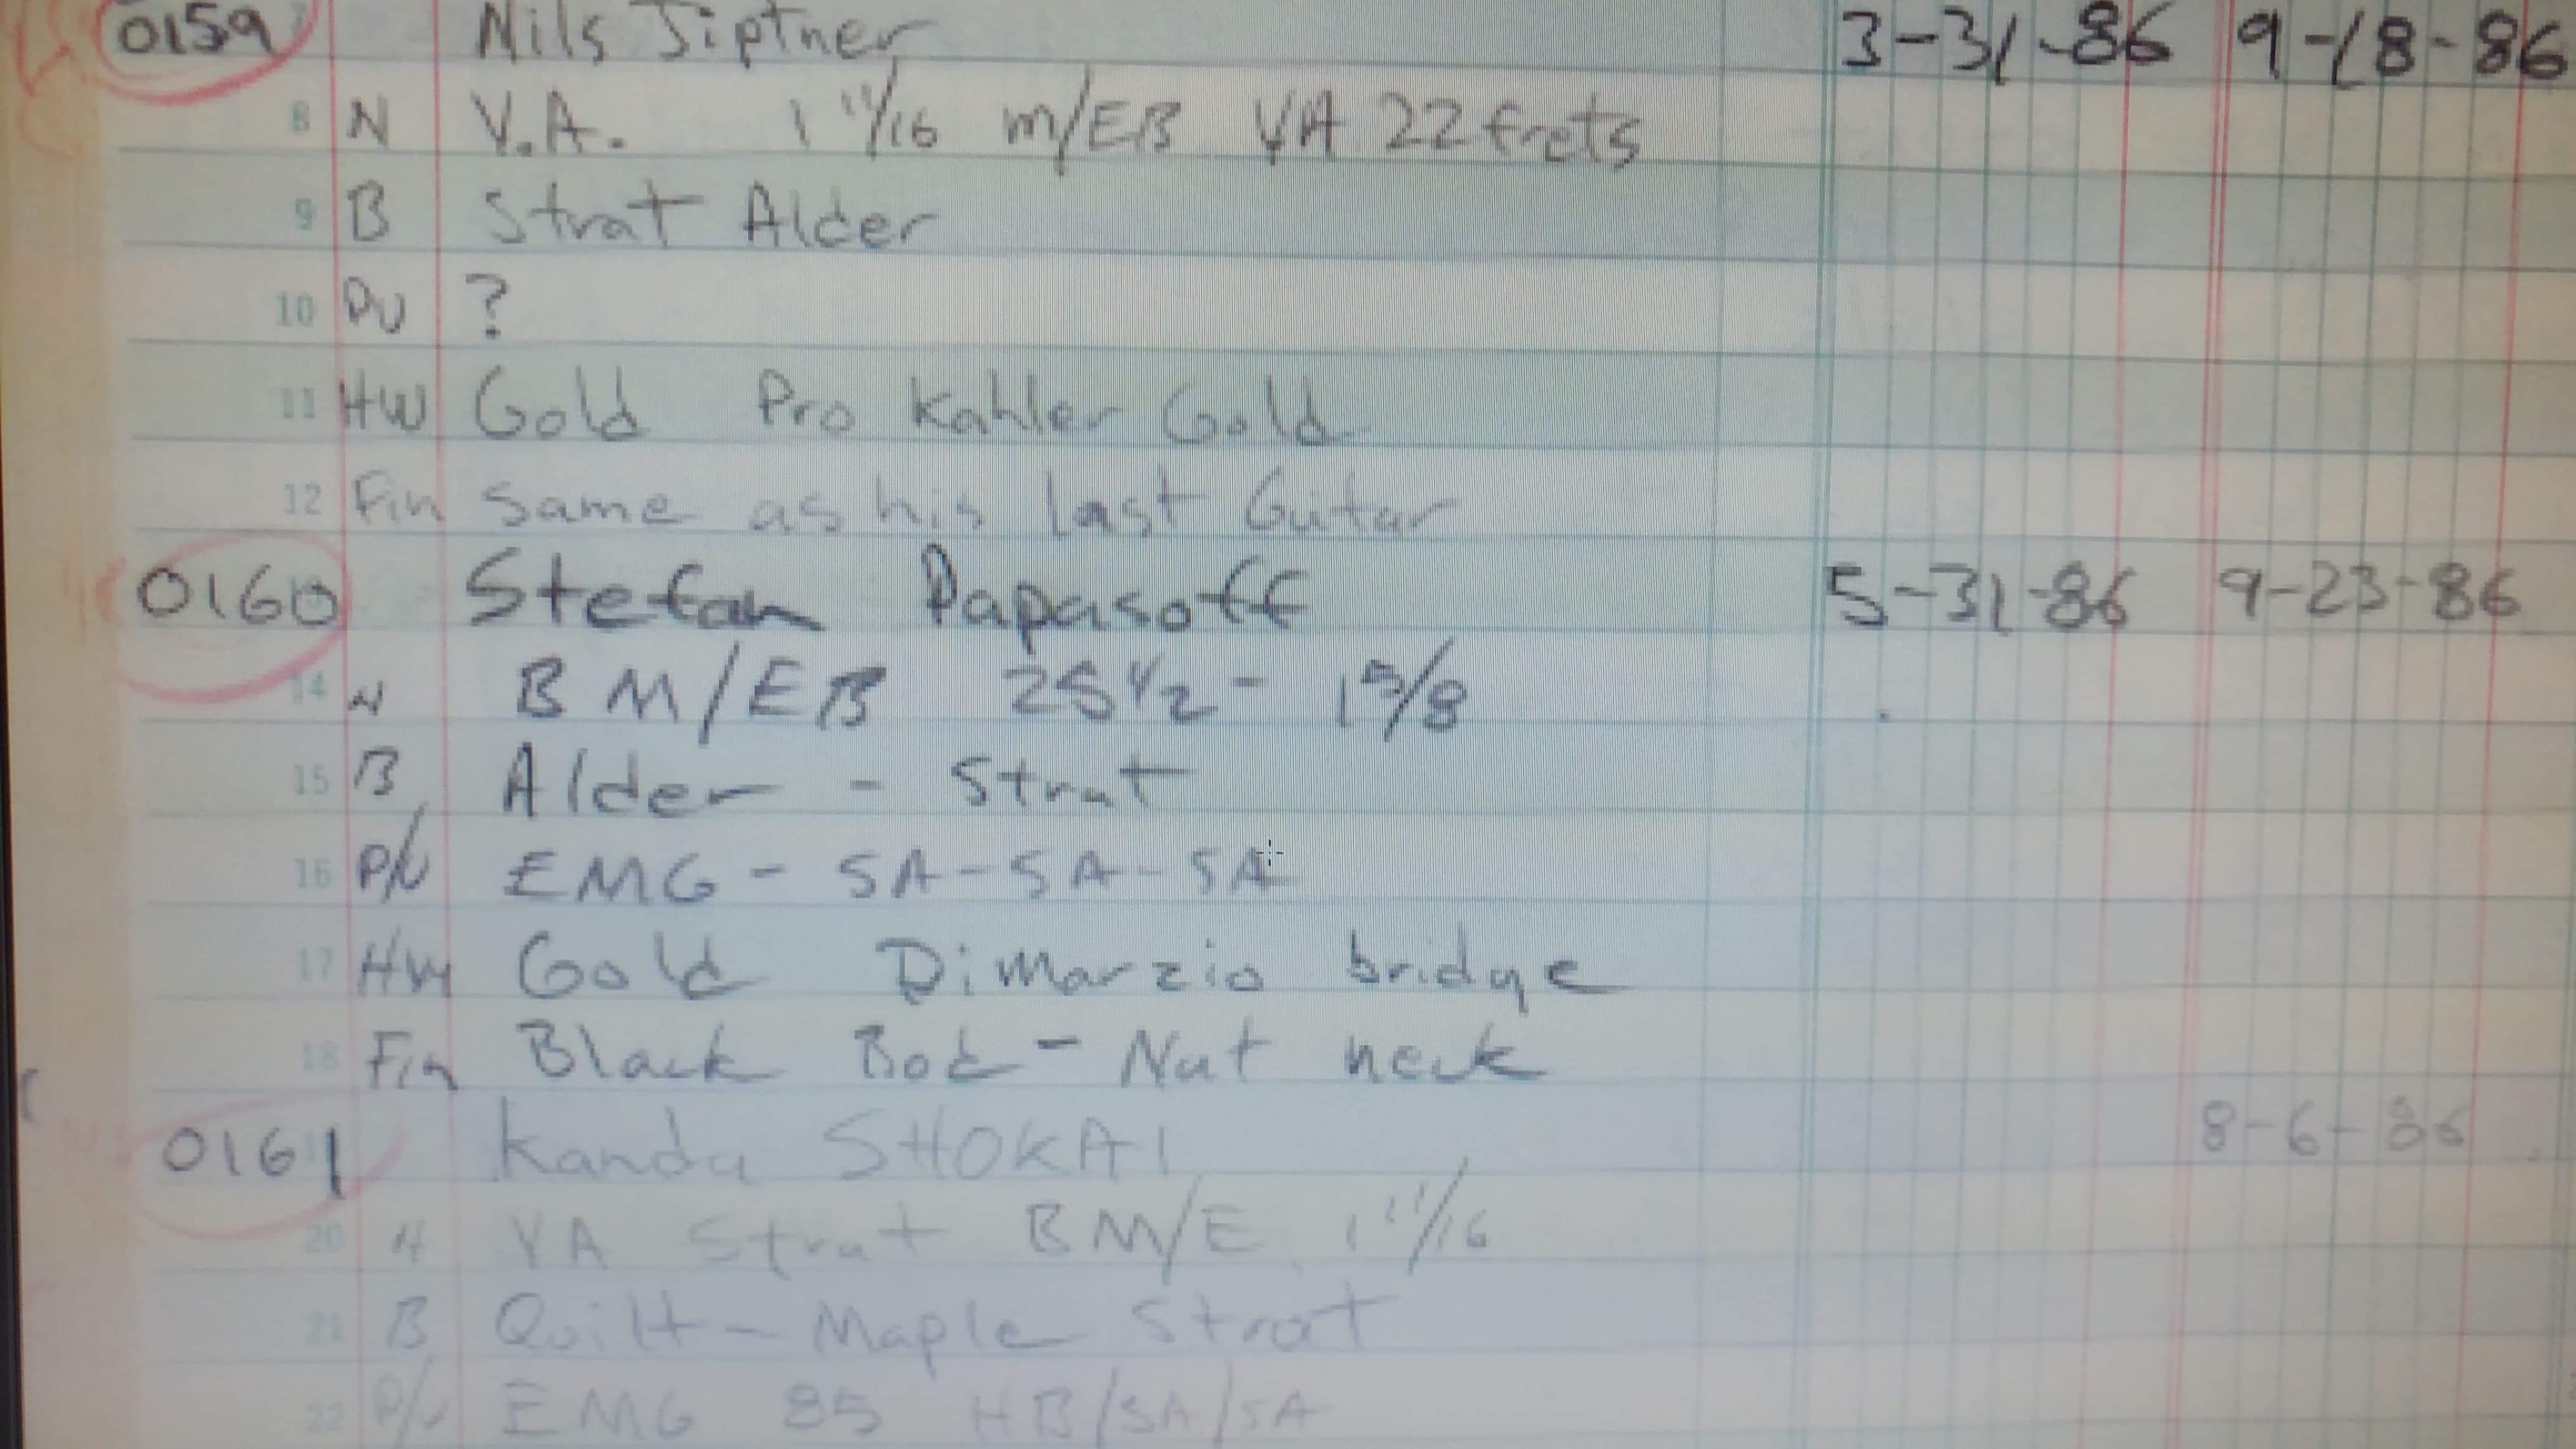 0159 Nils Jiptner 3-31-86 9-18-86
8 N V.A. 1 11/16 m/EB VA 22 frets
9 B Strat Alder
10 PU ?
11 HW Gold Pro Kahler Gold
12 Fin Same as his last Gutar
0160 Stefan Papasoff 5-31-86 9-23-86
14 N B M/EB 25 1/2 - 1 5/8
15 B Alder - Strat
16 P/U EMG - SA - SA - SA
17 HW Gold DiMarzio bridge
18 Fin Black Bod - Nat neck
0161 Kanda SHOKAI 8-6-86
20 N VA Strat BM/E 1 11/16
21 B Quilt - Maple Strat
22 P/U EMG 85 HB/SA/SA